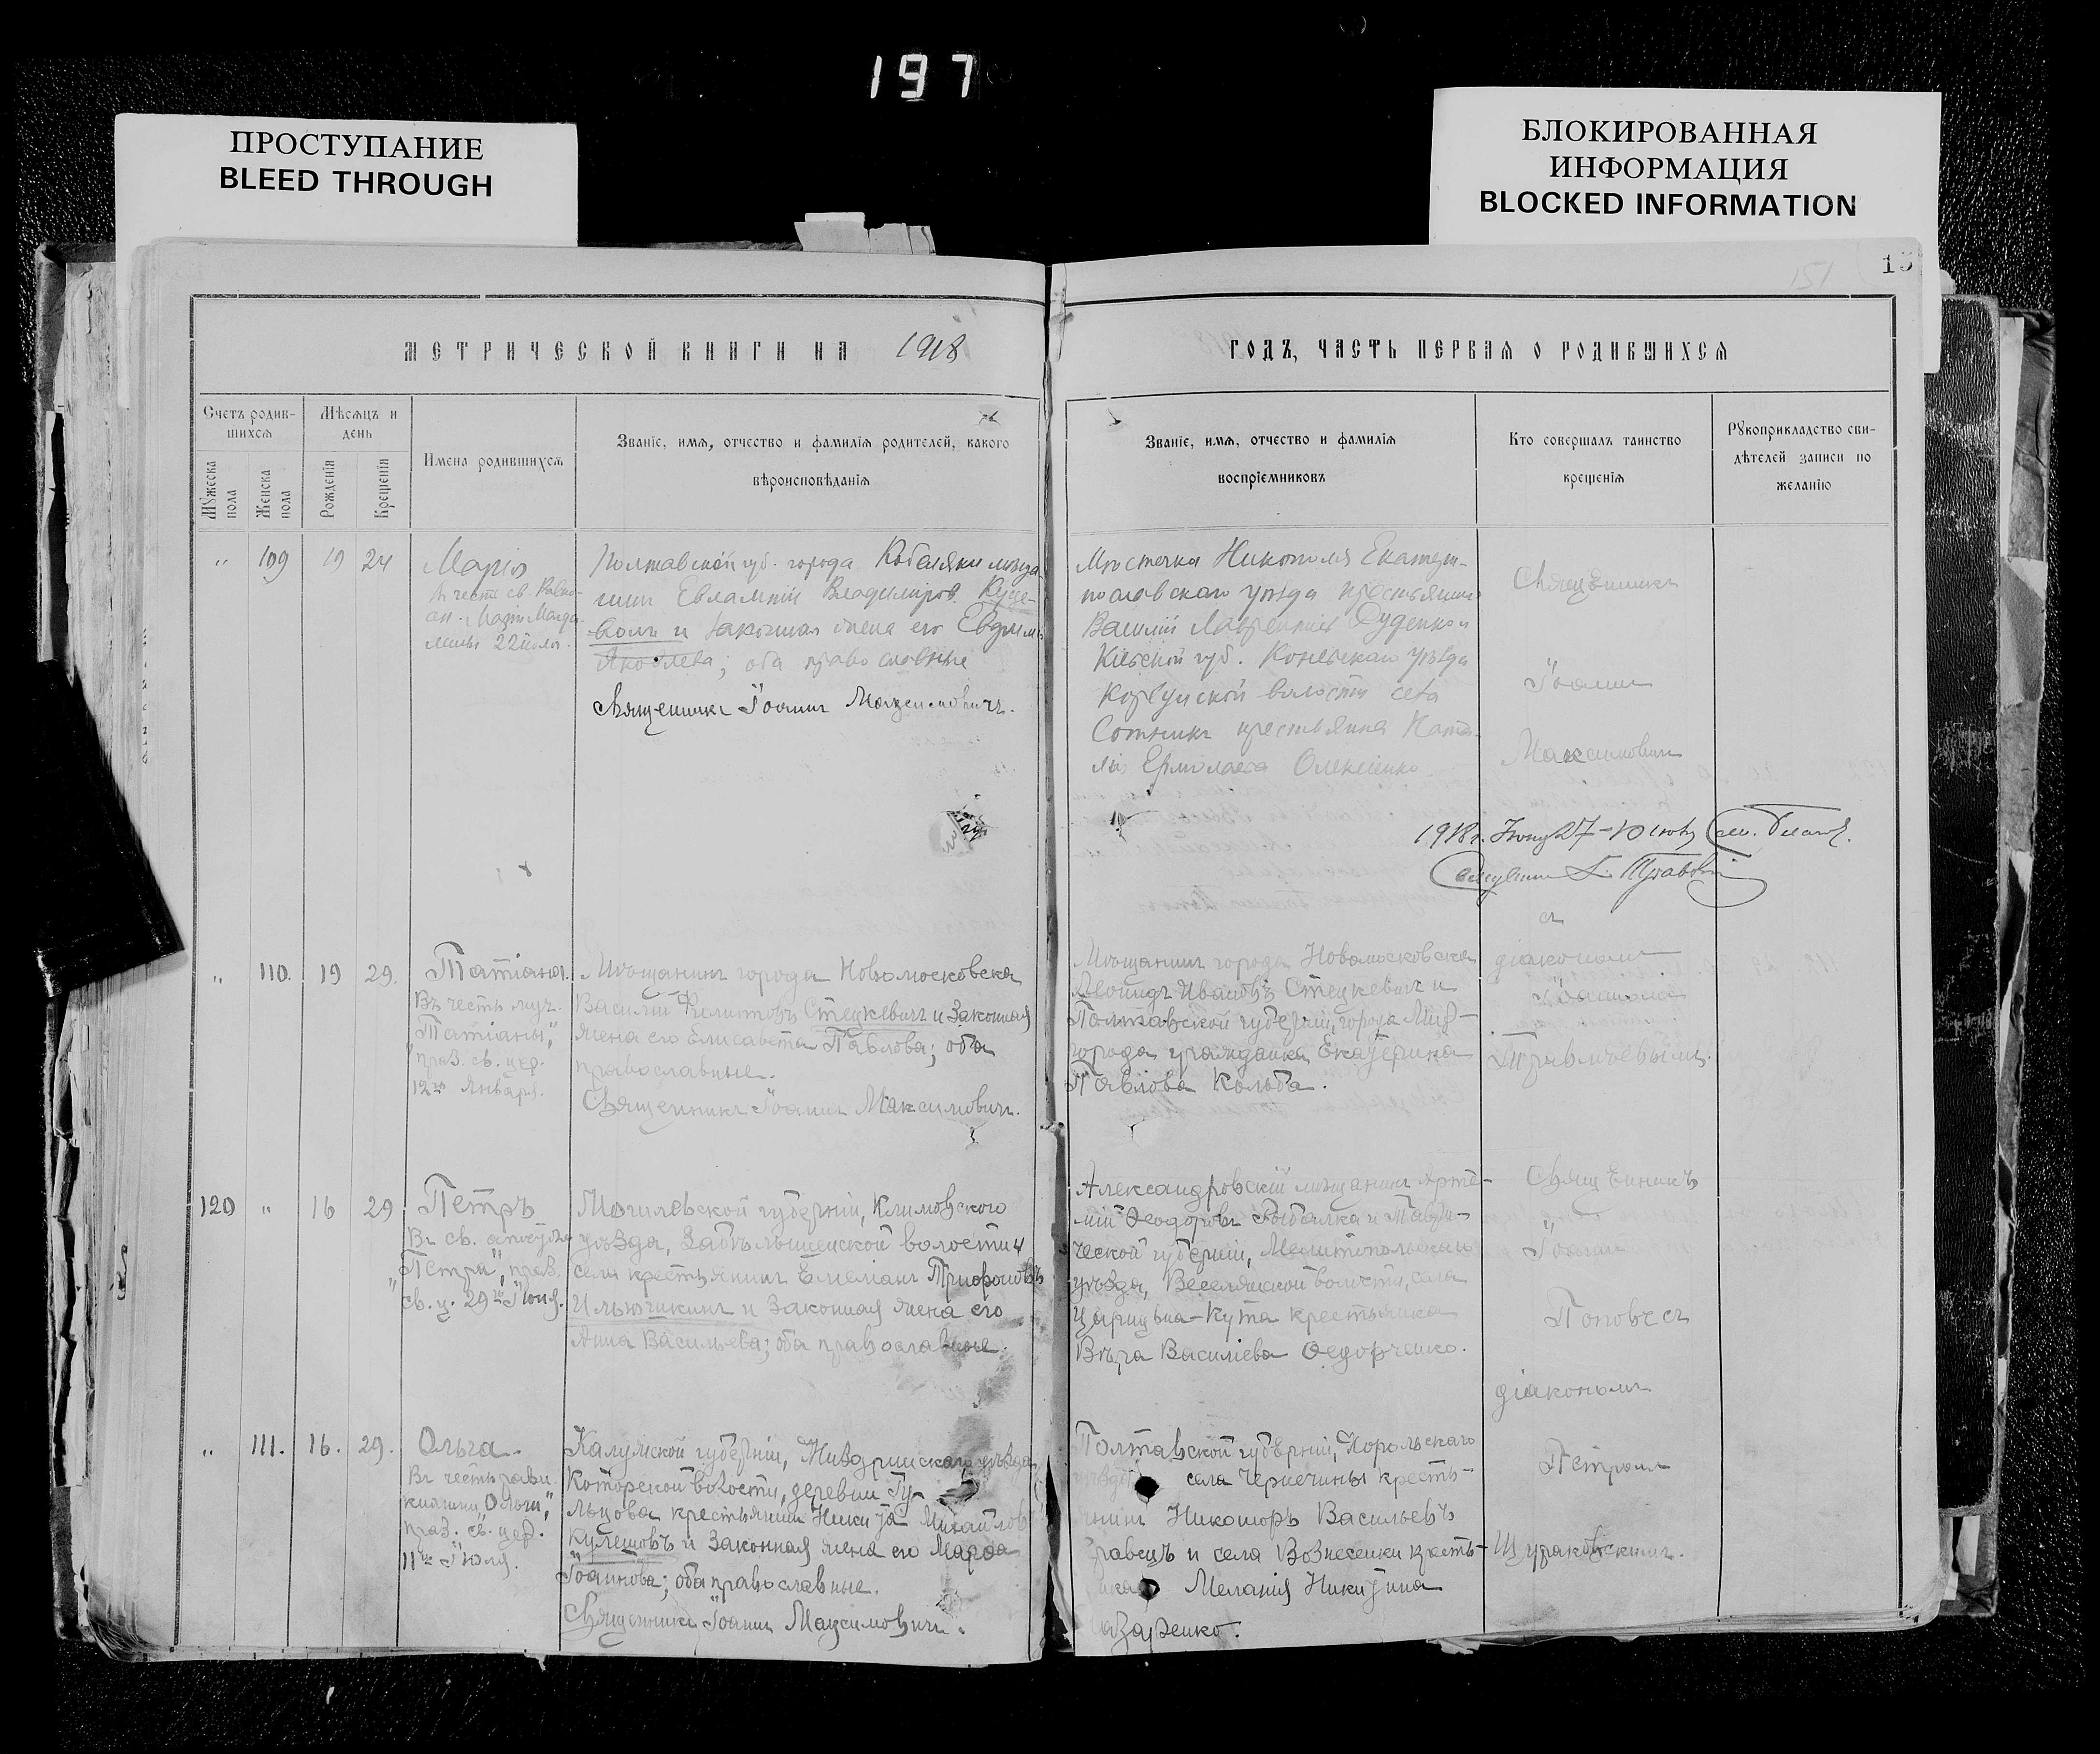 197
ПРОСТУПАНИЕ
BLEED THROUGH
БЛОКИРОВАННАЯ
ИНФОРМАЦИЯ
BLOCKED INFORMATION
151
15
МЕТРИЧЕСКОЙ КНИГИ НА 1918
ГОДЪ, ЧАСТЬ ПЕРВАЯ О РОДИВШИХСЯ
Счетъ родив-
шихся
Мужеска пола
Женска пола
Мѣсяцъ и
день
Рожденія
Крещенія
Имена родившихся
Званіе, имя, отчество и фамилія родителей, какого
вѣроисповѣданія
Званіе, имя, отчество и фамилія
воспріемниковъ
Кто совершалъ таинство
крещенія
Рукоприкладство сви-
дѣтелей записи по
желанію
" 109 19 24
Марія
въ честь св. Равно-
ап. Маріи Магда-
лины 22 іюля.
Полтавской губ. города Кобеляки мѣща-
нинъ Евлампій Владиміров.
и законная жена его
Яковлева; оба православные
Священникъ Іоаннъ Максимовичъ.
Мѣстечка Никополя Екатери-
нославскаго уѣзда крестьянинъ
Василій Лаврентіевъ Дуденко и
Кіевской губ. Каневскаго уѣзда
Корсунской волости села
Сотники крестьянка Ната-
лія Ермолаева Олексіенко
Священникъ
Іоаннъ
Максимовичъ
1918 г. 27 - 10
съ
діакономъ
Іоанномъ
" 110. 19 29.
Татіана.
Въ честь муч.
"Татіаны",
праз. св. цер.
12го Января.
Мѣщанинъ города Новомосковска
Василій Филиповъ Стецкевичъ и законная
жена его Елисавета Павлова; оба
православные.
Священникъ Іоаннъ Максимовичъ.
Мѣщанинъ города Новомосковска
Леонидъ Ивановъ Стецкевичъ и
Полтавской губерніи, города Мир-
города гражданка Екатерина
Павлова Кольба.
120 " 16 29
Петръ
"Петра", праз.
св. ц. 29го Іюня.
Могилевской губерніи, Климовского
уѣзда, волости и
села крестьянинъ Емеліанъ Трифоновъ
и законная жена его
Анна Васильева; оба православные.
Александровскій мѣщанинъ Арте-
мій Ѳеодоровъ Рыбалка и Таври-
ческой губерніи, Мелитопольскаго
уѣзда, Веселянской волости, села
Царицына-Кута крестьянка
Вѣра Василіева Ѳедорченко.
Священникъ
Іоаннъ
Поповъ съ
діакономъ
Петромъ
" 111. 16. 29.
Ольга.
Въ честь равн.
княгини "Ольги",
праз. св. цер.
11го Іюля.
Калужской губерніи, Жиздринскаго уѣзда,
Которской волости, деревни Гу-
льцова крестьянинъ Никита Михайловъ
Кулешовъ и законная жена его Марѳа
Іоаннова; оба православные.
Священникъ Іоаннъ Максимовичъ.
Полтавской губерніи, Хорольскаго
села Чернечины кресть-
Никаноръ Васильевъ
и села Вознесенки кресть-
Меланія Никитина